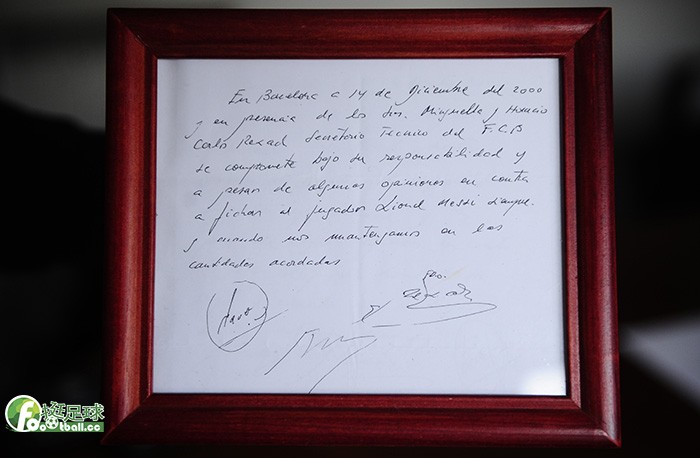 En Barcelona a 14 de Diciembre del 2000
y en presencia de los Srs. Minguella y Horacio
Carlo Rexach Secretario Tecnico del F.C.B
se compromete bajo su responsabilidad y
a pesar de algunas opiniones en contra
a fichar al jugador Lionel Messi siempre
y cuando nos mantengamos en las
cantidades acordadas
足球
football.cc